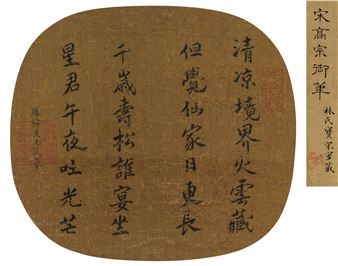 清涼境界火雲藏
但覺仙家日更長
千歲壽松誰宴坐
星君午夜吐光芒
宋高宗御筆
林氏寶宋室藏